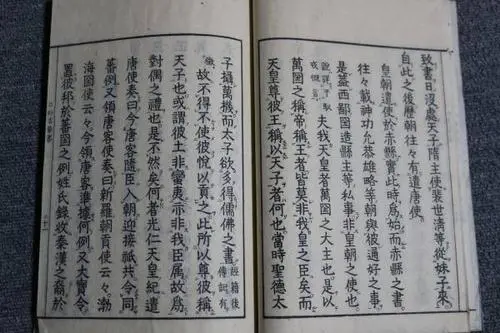 致書日沒處天子隋主使裴世清等從妹子來
自此之後歷朝往々有遣唐使
皇朝遣使於赤縣實此時爲始而赤縣之書
往々載神功允恭雄略等朝與彼通好之事
是蓋西鄙國造縣主等私事非皇朝之使也
說詳于馭戎慨言夫我天皇者萬國之大主也是以
萬國之稱帝稱王者皆莫非我皇之臣矣而
天皇尊彼王稱以天子者何也當時聖德太
子攝萬機而太子欲多得儒佛之書經籍後傳記有
徵故不得不使彼悅以貢之此所以尊彼稱
天子也或謂彼土非蠻夷亦非我臣屬故爲
對偶之禮也是不然矣何者光仁天皇紀遣
唐使奏曰今唐客隨臣入朝迎接祇共令同
蕃例又領唐客使奏曰新羅朝貢使云々渤
海國使云々今領唐客準據何例又大寶令
置彼邦於蕃國之例姓氏錄收秦漢之裔於